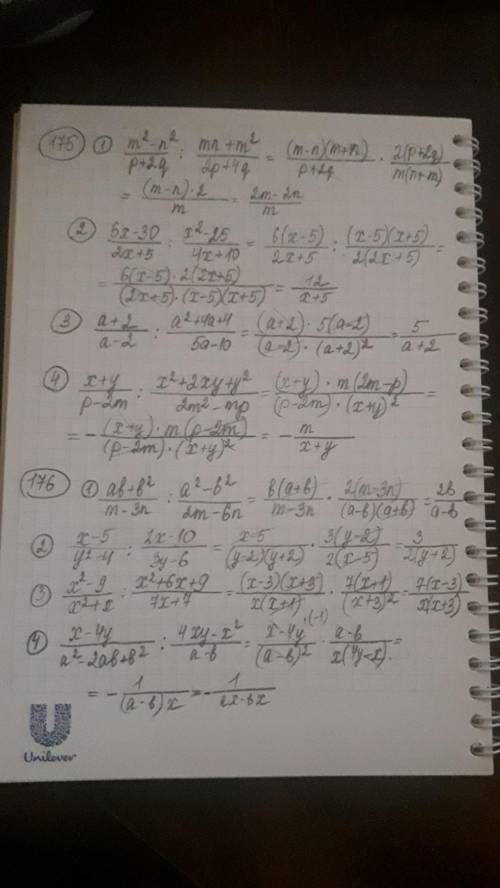 175 1 (m²-n²)/(p+2q) : (mn+m²)/(2p+4q) = (m-n)(m+n)/(p+2q) · 2(p+2q)/(m(n+m))
= (m-n)·2/m = (2m-2n)/m
2 (6x-30)/(2x+5) : (x²-25)/(4x+10) = 6(x-5)/(2x+5) : (x-5)(x+5)/(2(2x+5)) =
= 6(x-5)·2(2x+5)/((2x+5)·(x-5)(x+5)) = 12/(x+5)
3 (a+2)/(a-2) : (a²+4a+4)/(5a-10) = (a+2)·5(a-2)/((a-2)·(a+2)²) = 5/(a+2)
4 (x+y)/(p-2m) : (x²+2xy+y²)/(2m²-mp) = (x+y)·m(2m-p)/((p-2m)·(x+y)²) =
= -(x+y)·m(p-2m)/((p-2m)·(x+y)²) = -m/(x+y)
176 1 (ab+b²)/(m-3n) : (a²-b²)/(2m-6n) = b(a+b)/(m-3n) · 2(m-3n)/((a-b)(a+b)) = 2b/(a-b)
2 (x-5)/(y²-4) : (2x-10)/(3y-6) = (x-5)/((y-2)(y+2)) · 3(y-2)/(2(x-5)) = 3/(2(y+2))
3 (x²-9)/(x²+x) : (x²+6x+9)/(7x+7) = (x-3)(x+3)/(x(x+1)) · 7(x+1)/((x+3)²) = 7(x-3)/(x(x+3))
4 (x-4y)/(a²-2ab+b²) : (4xy-x²)/(a-b) = (x-4y)·(-1)/((a-b)²) · (a-b)/(x(4y-x)) =
= -1/((a-b)x) = -1/(ax-bx)
Unilever